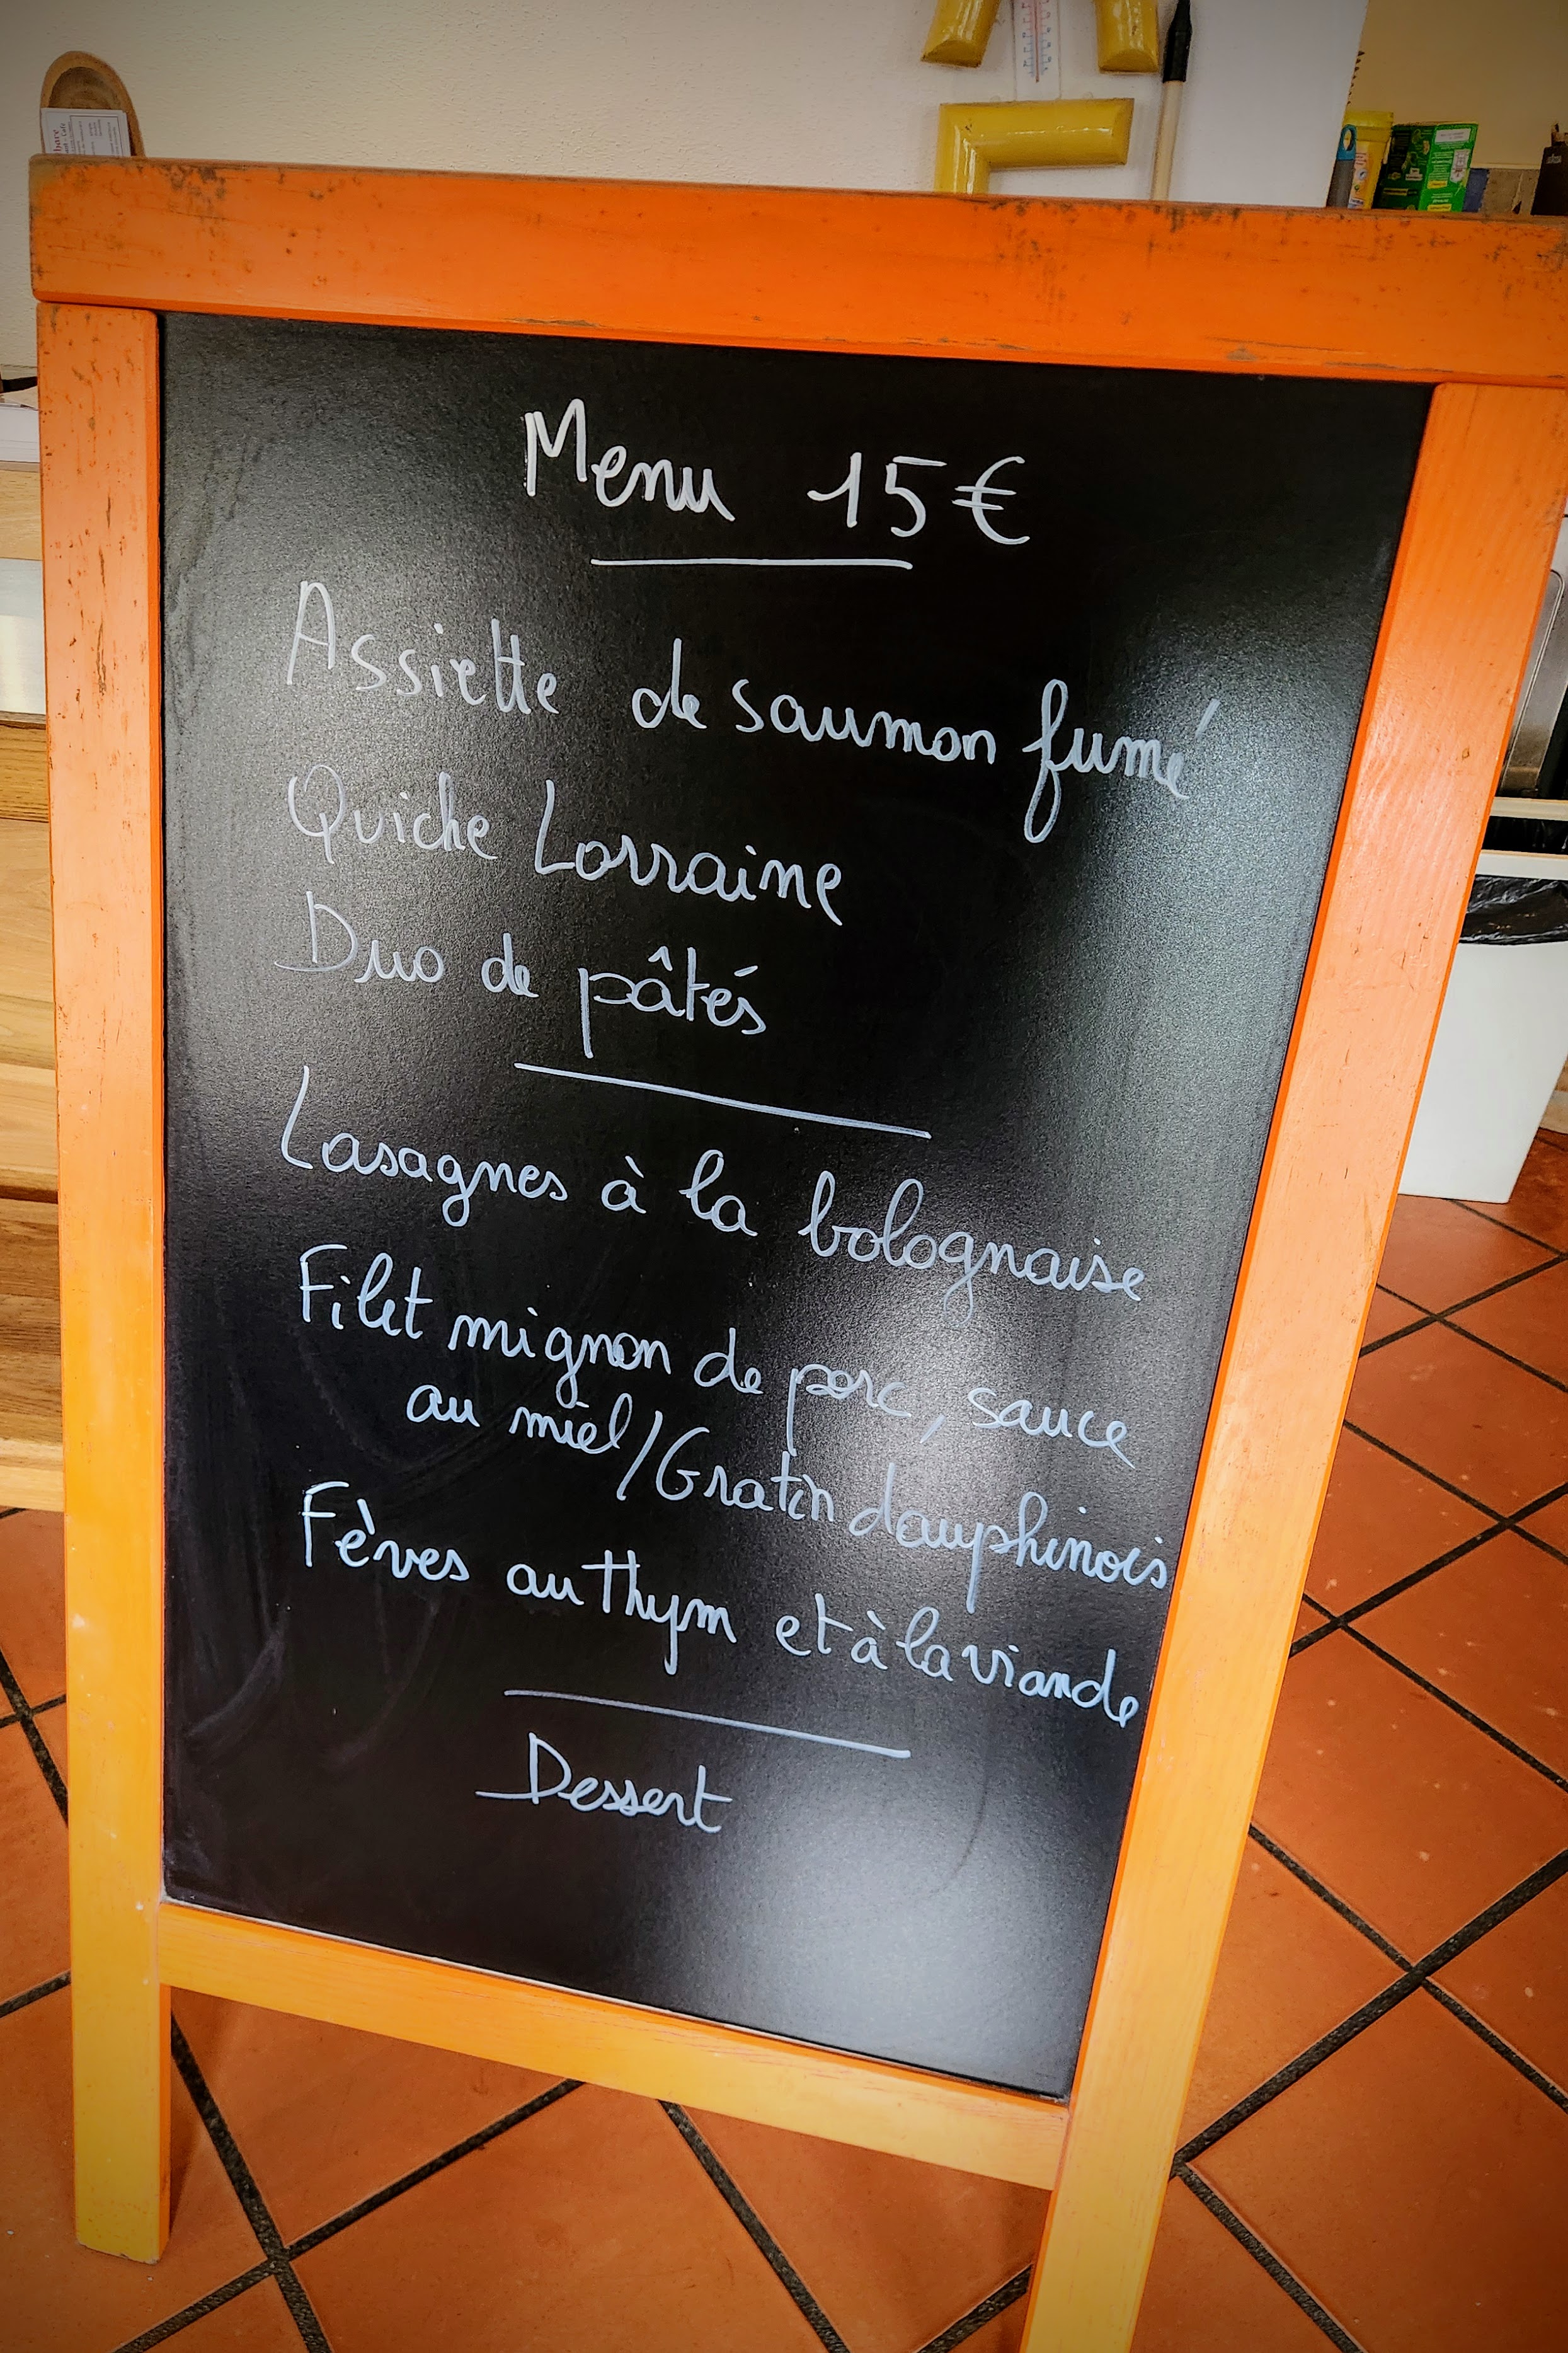 Menu 15€
Assiette de saumon fumé
Quiche Lorraine
Duo de pâtés
Lasagnes à la bolognaise
Filet mignon de porc, sauce
au miel/Gratin dauphinois
Fèves au thym et à la viande
Dessert